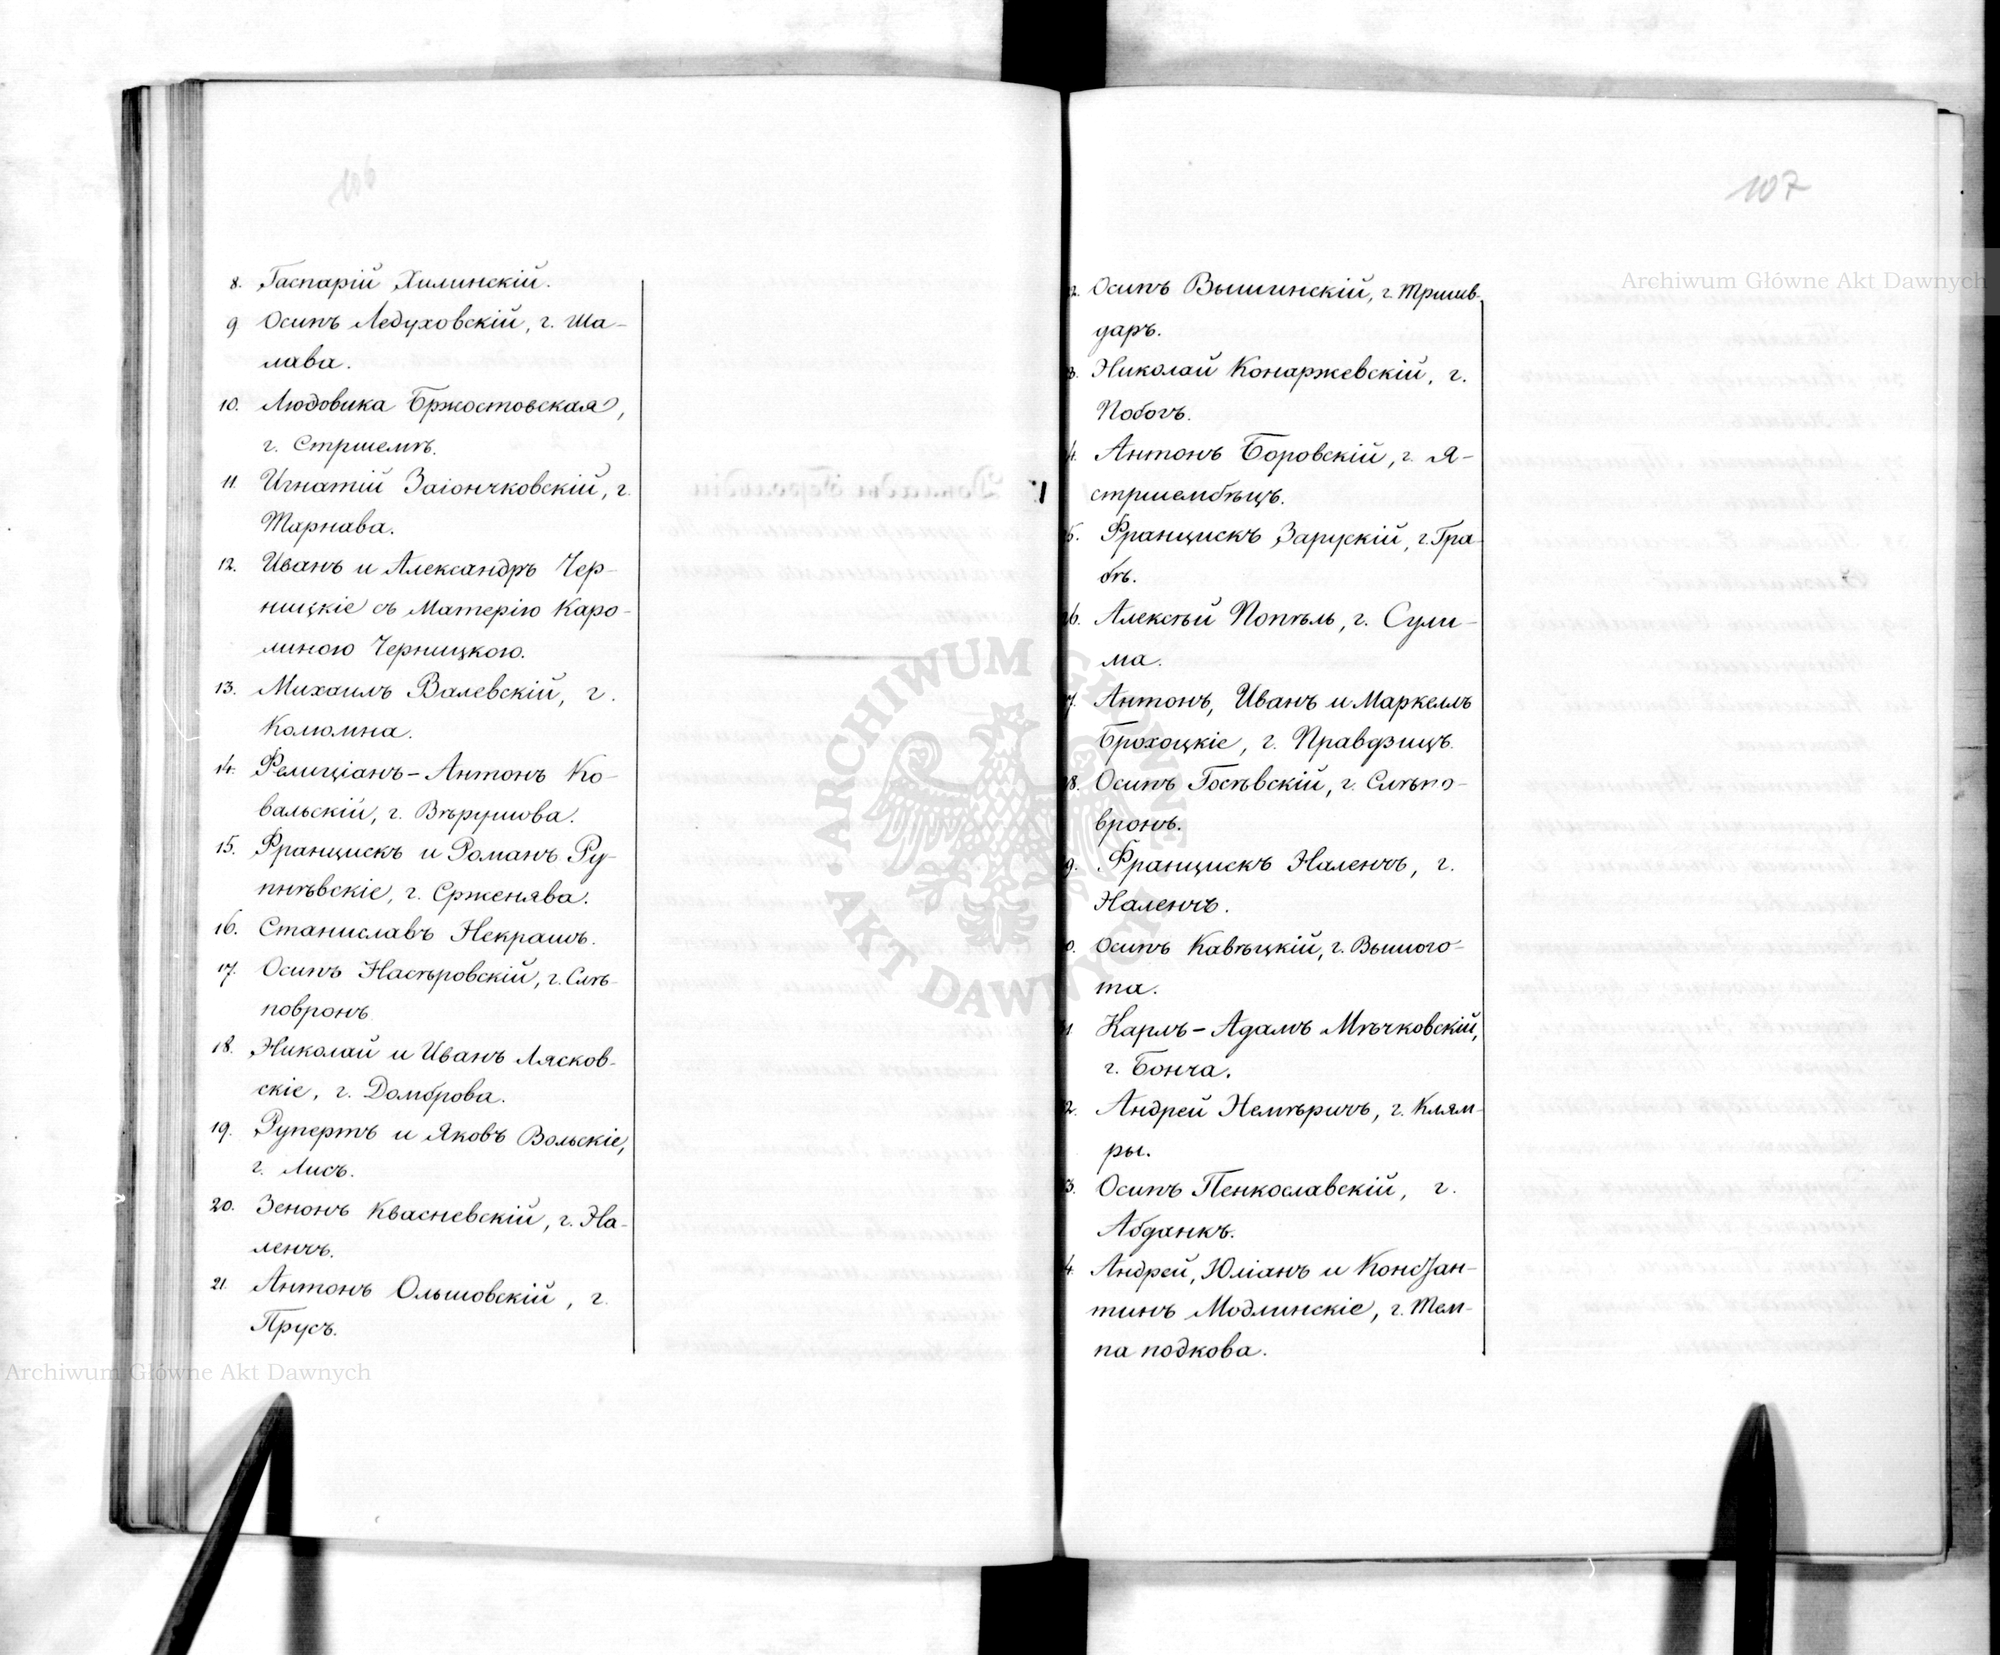 106
8. Гаспарій Хилинскій.
9 Осипъ Ледуховскій, г. Ша-
лава.
10. Людовика Бржостовская,
г. Стршемѣ.
11. Игнатій Заіончковскій, г.
Тарнава.
12. Иванъ и Александръ Чер-
ницкіе съ Матерію Каро-
линою Черницкою.
13. Михаилъ Валевскій, г.
Колюмна.
14. Фелиціанъ-Антонъ Ко-
вальскій, г. Вѣрушова.
15. Францискъ и Романъ Ру-
пнѣвскіе, г. Срженява.
16. Станиславъ Некрашъ.
17. Осипъ Насѣровскій, г. Слѣ-
повронъ
18. Николай и Иванъ Лясков-
скіе, г. Домброва.
19. Рупертъ и Яковъ Вольскіе,
г. Лисъ.
20. Зенонъ Квасневскій, г. На-
ленчъ.
21. Антонъ Ольшовскій, г.
Прусъ.
107
2. Осипъ Вышинскій, г. Тршив-
даръ.
3. Николай Конаржевскій, г.
Побогъ.
4. Антонъ Боровскій, г. Я-
стршембѣцъ.
5. Францискъ Зарускій, г. Гра-
бѣ.
6. Алексѣй Попѣль, г. Сули-
ма.
7. Антонъ, Иванъ и Маркеллъ
Брохоцкіе, г. Правдзицъ.
8. Осипъ Госѣвскій, г. Слѣпо-
вронъ.
9. Францискъ Наленчъ, г.
Наленчъ.
0. Осипъ Кавѣцкій, г. Вышого-
та.
1 Карлъ-Адамъ Мѣчковскій,
г. Бонча.
2. Андрей Немѣричъ, г. Клям-
ры.
3. Осипъ Пенкославскій, г.
Абданкъ.
4. Андрей, Юліанъ и Констан-
тинъ Модлинскіе, г. Тем-
па подкова.
Archiwum Główne Akt Dawnych
Archiwum Główne Akt Dawnych
ARCHIWUM GŁÓWNE AKT DAWNYCH